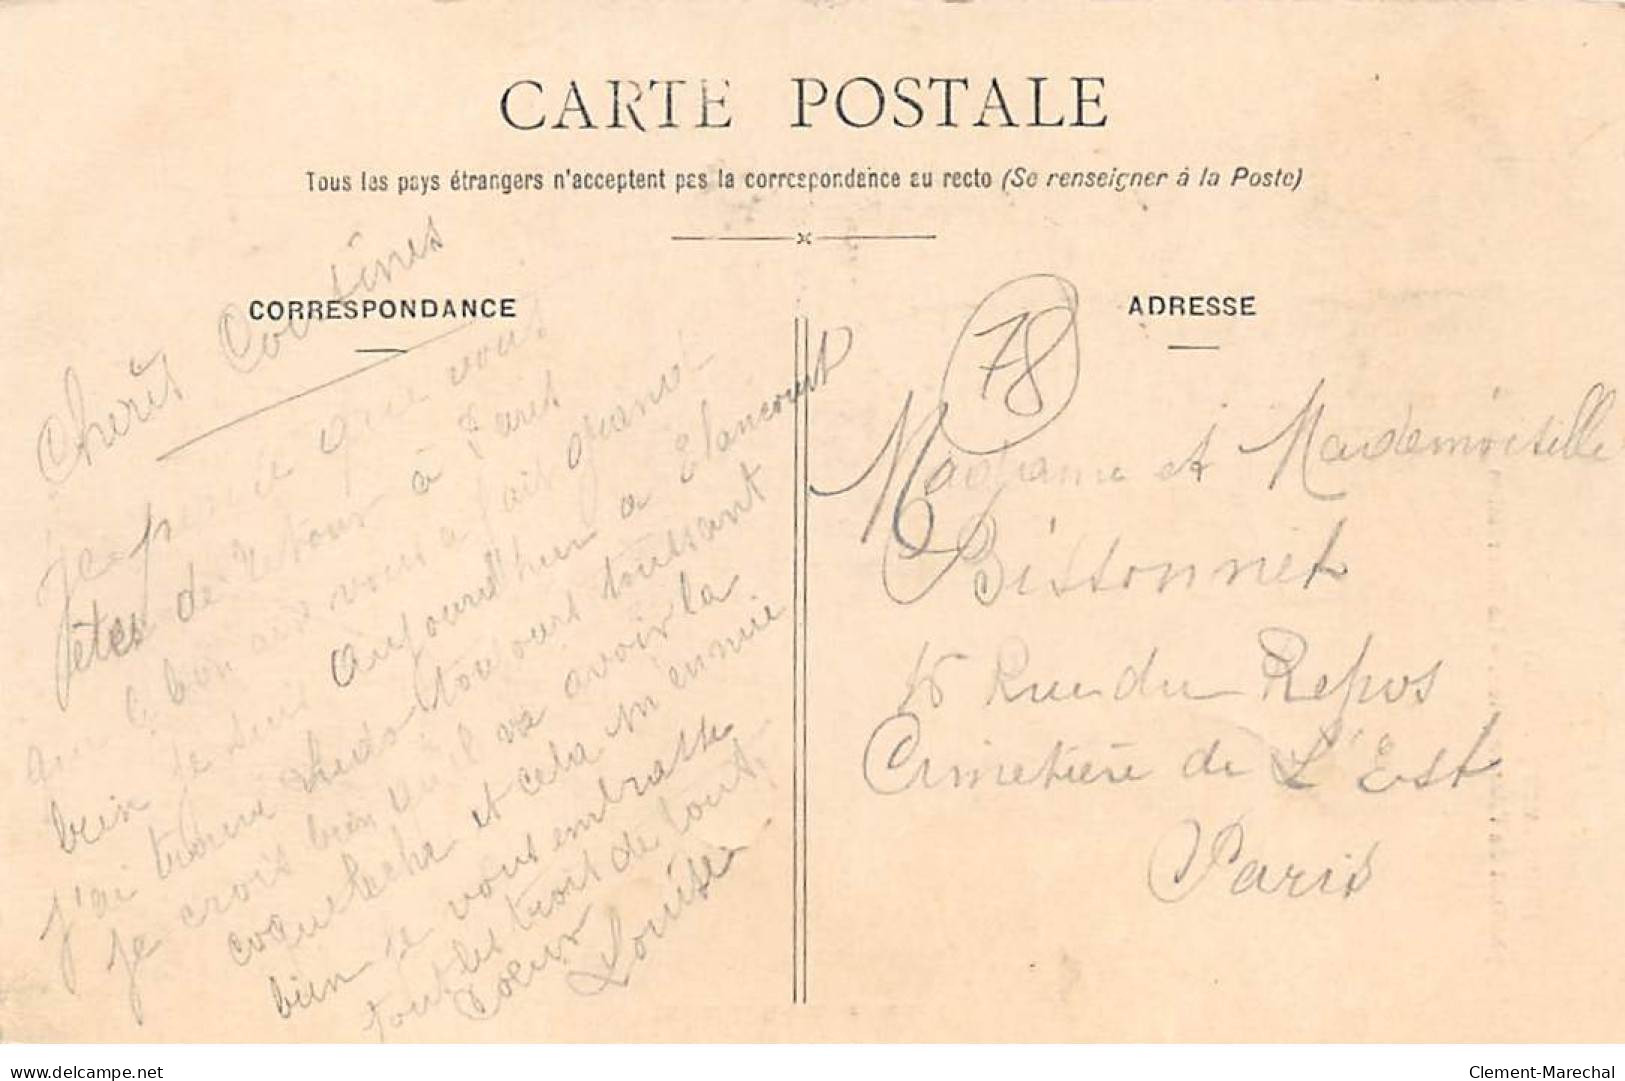 CARTE POSTALE
Tous les pays étrangers n'acceptent pas la correspondance au recto (Se renseigner à la Poste)
CORRESPONDANCE
Cheris Cousines
Je pense que vous
êtes de retour à Paris
que le bon air vous a fait grand
bien je suis aujourd'hui a Elancourt
j'ai trouvé toujours toussant
je crois bien qu'il va avoir la
coqueluche et cela m'ennuie
bien je vous embrasse
tout les trois de tout
coeur
Louise
ADRESSE
78
Madame et Mademoiselle
Bissonnet
15 Rue du Repos
Cimetière de L'Est
Paris
delcampe.net
Clement-Marechal